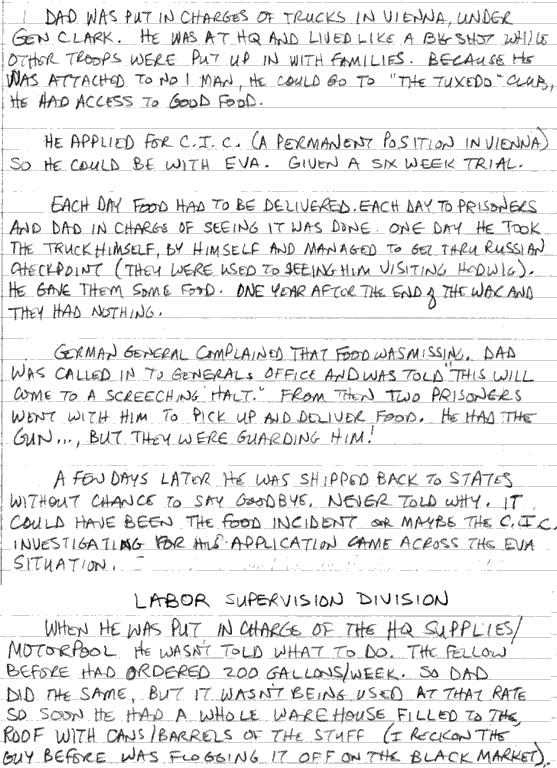 DAD WAS PUT IN CHARGES OF TRUCKS IN VIENNA, UNDER
GEN CLARK. HE WAS AT HQ AND LIVED LIKE A BIG SHOT WHILE
OTHER TROOPS WERE PUT UP IN WITH FAMILIES. BECAUSE HE
WAS ATTACHED TO NO 1 MAN, HE COULD GO TO "THE TUXEDO" CLUB,
HE HAD ACCESS TO GOOD FOOD.
HE APPLIED FOR C.I.C. (A PERMANENT POSITION IN VIENNA)
SO HE COULD BE WITH EVA. GIVEN A SIX WEEK TRIAL.
EACH DAY FOOD HAD TO BE DELIVERED. EACH DAY TO PRISONERS
AND DAD IN CHARGE OF SEEING IT WAS DONE. ONE DAY HE TOOK
THE TRUCK HIMSELF, BY HIMSELF AND MANAGED TO GET THRU RUSSIAN
CHECKPOINT (THEY WERE USED TO SEEING HIM VISITING HEDWIG).
HE GAVE THEM SOME FOOD. ONE YEAR AFTER THE END OF THE WAR AND
THEY HAD NOTHING.
GERMAN GENERAL COMPLAINED THAT FOOD WAS MISSING. DAD
WAS CALLED IN TO GENERALS OFFICE AND WAS TOLD "THIS WILL
COME TO A SCREECHING HALT." FROM THEN TWO PRISONERS
WENT WITH HIM TO PICK UP AND DELIVER FOOD. HE HAD THE
GUN..., BUT THEY WERE GUARDING HIM!
A FEW DAYS LATER HE WAS SHIPPED BACK TO STATES
WITHOUT CHANCE TO SAY GOODBYE. NEVER TOLD WHY. IT
COULD HAVE BEEN THE FOOD INCIDENT OR MAYBE THE C.I.C.
INVESTIGATING FOR HIS APPLICATION CAME ACROSS THE EVA
SITUATION.
LABOR SUPERVISION DIVISION
WHEN HE WAS PUT IN CHARGE OF THE HQ SUPPLIES/
MOTORPOOL HE WASN'T TOLD WHAT TO DO. THE FELLOW
BEFORE HAD ORDERED 200 GALLONS/WEEK. SO DAD
DID THE SAME, BUT IT WASN'T BEING USED AT THAT RATE
SO SOON HE HAD A WHOLE WAREHOUSE FILLED TO THE
ROOF WITH CANS/BARRELS OF THE STUFF (I RECKON THE
GUY BEFORE WAS FLOGGING IT OFF ON THE BLACK MARKET).